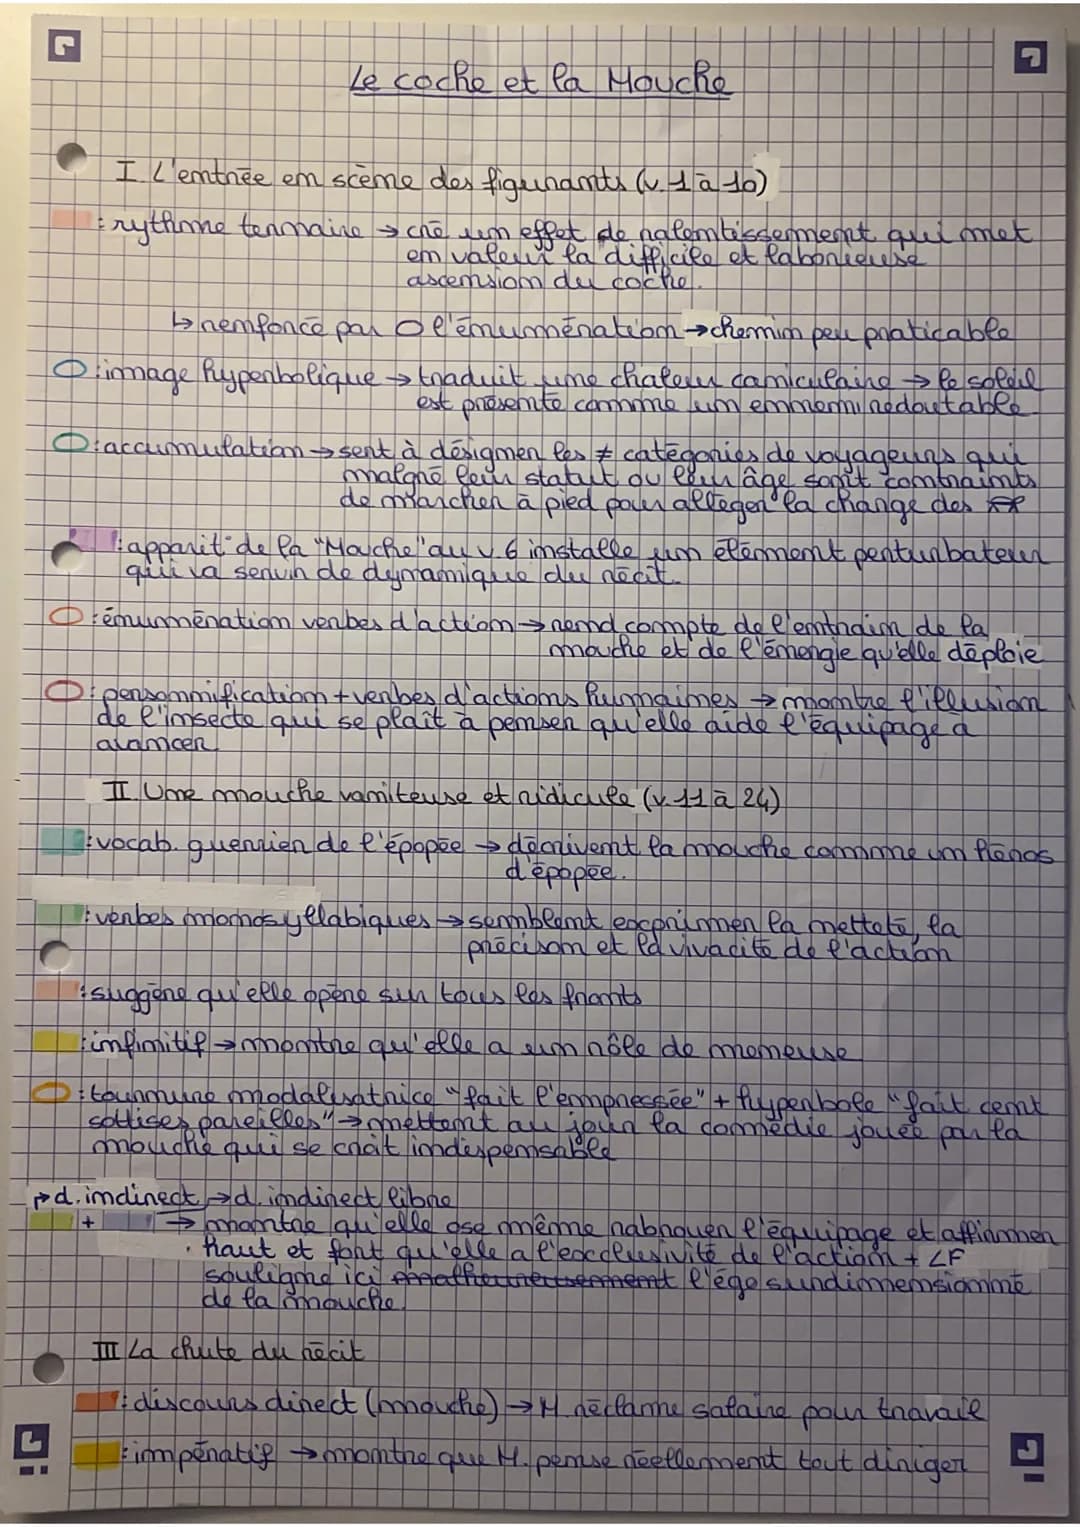 Le coche et la Mouche
I L'entrée en scène des figurants (v. 1 à 10)
: rythme ternaire → cré un effet de ralentissement qui met
en valeur la difficile et laborieuse
ascension du coche.
↳ renforcé par O l'énumération → chemin peu praticable
O : image hyperbolique → traduit une chaleur caniculaire → le soleil
est présenté comme un ennemi redoutable
O : accumulation → sert à désigner les ≠ catégories de voyageurs qui
malgré leur statut ou leur âge sont contraints
de marcher à pied pour alléger la charge des
: apparit° de la "Mouche" au v. 6 installe un élément perturbateur
qui va servir de dynamique du récit.
O : énumération verbes d'action → rend compte de l'entrain de la
mouche et de l'énergie qu'elle déploie
O : personnification + verbes d'actions humaines → montre l'illusion
de l'insecte qui se plaît à penser qu'elle aide l'équipage à
avancer
II Une mouche vaniteuse et ridicule (v. 11 à 24)
: vocab. guerrier de l'épopée → décrivent la mouche comme un héros
d'épopée.
: verbes monosyllabiques → semblent exprimer la netteté, la
précison et la vivacité de l'action
: suggère qu'elle opère sur tous les fronts
: infinitif → montre qu'elle a un rôle de meneuse
O : tournure modalisatrice "fait l'empressée" + hyperbole "fait cent
sottises pareilles" → mettent au jour la comédie jouée par la
mouche qui se croit indispensable
→ d. indirect → d. indirect libre
+ → montre qu'elle ose même rabrouer l'équipage et affirmer
haut et fort qu'elle a l'exclusivité de l'action + LF
souligne ici malheureusement l'égo surdimensionné
de la mouche.
III La chute du récit
: discours direct (mouche) → M. réclame salaire pour travail
: impératif → montre que M. pense réellement tout diriger